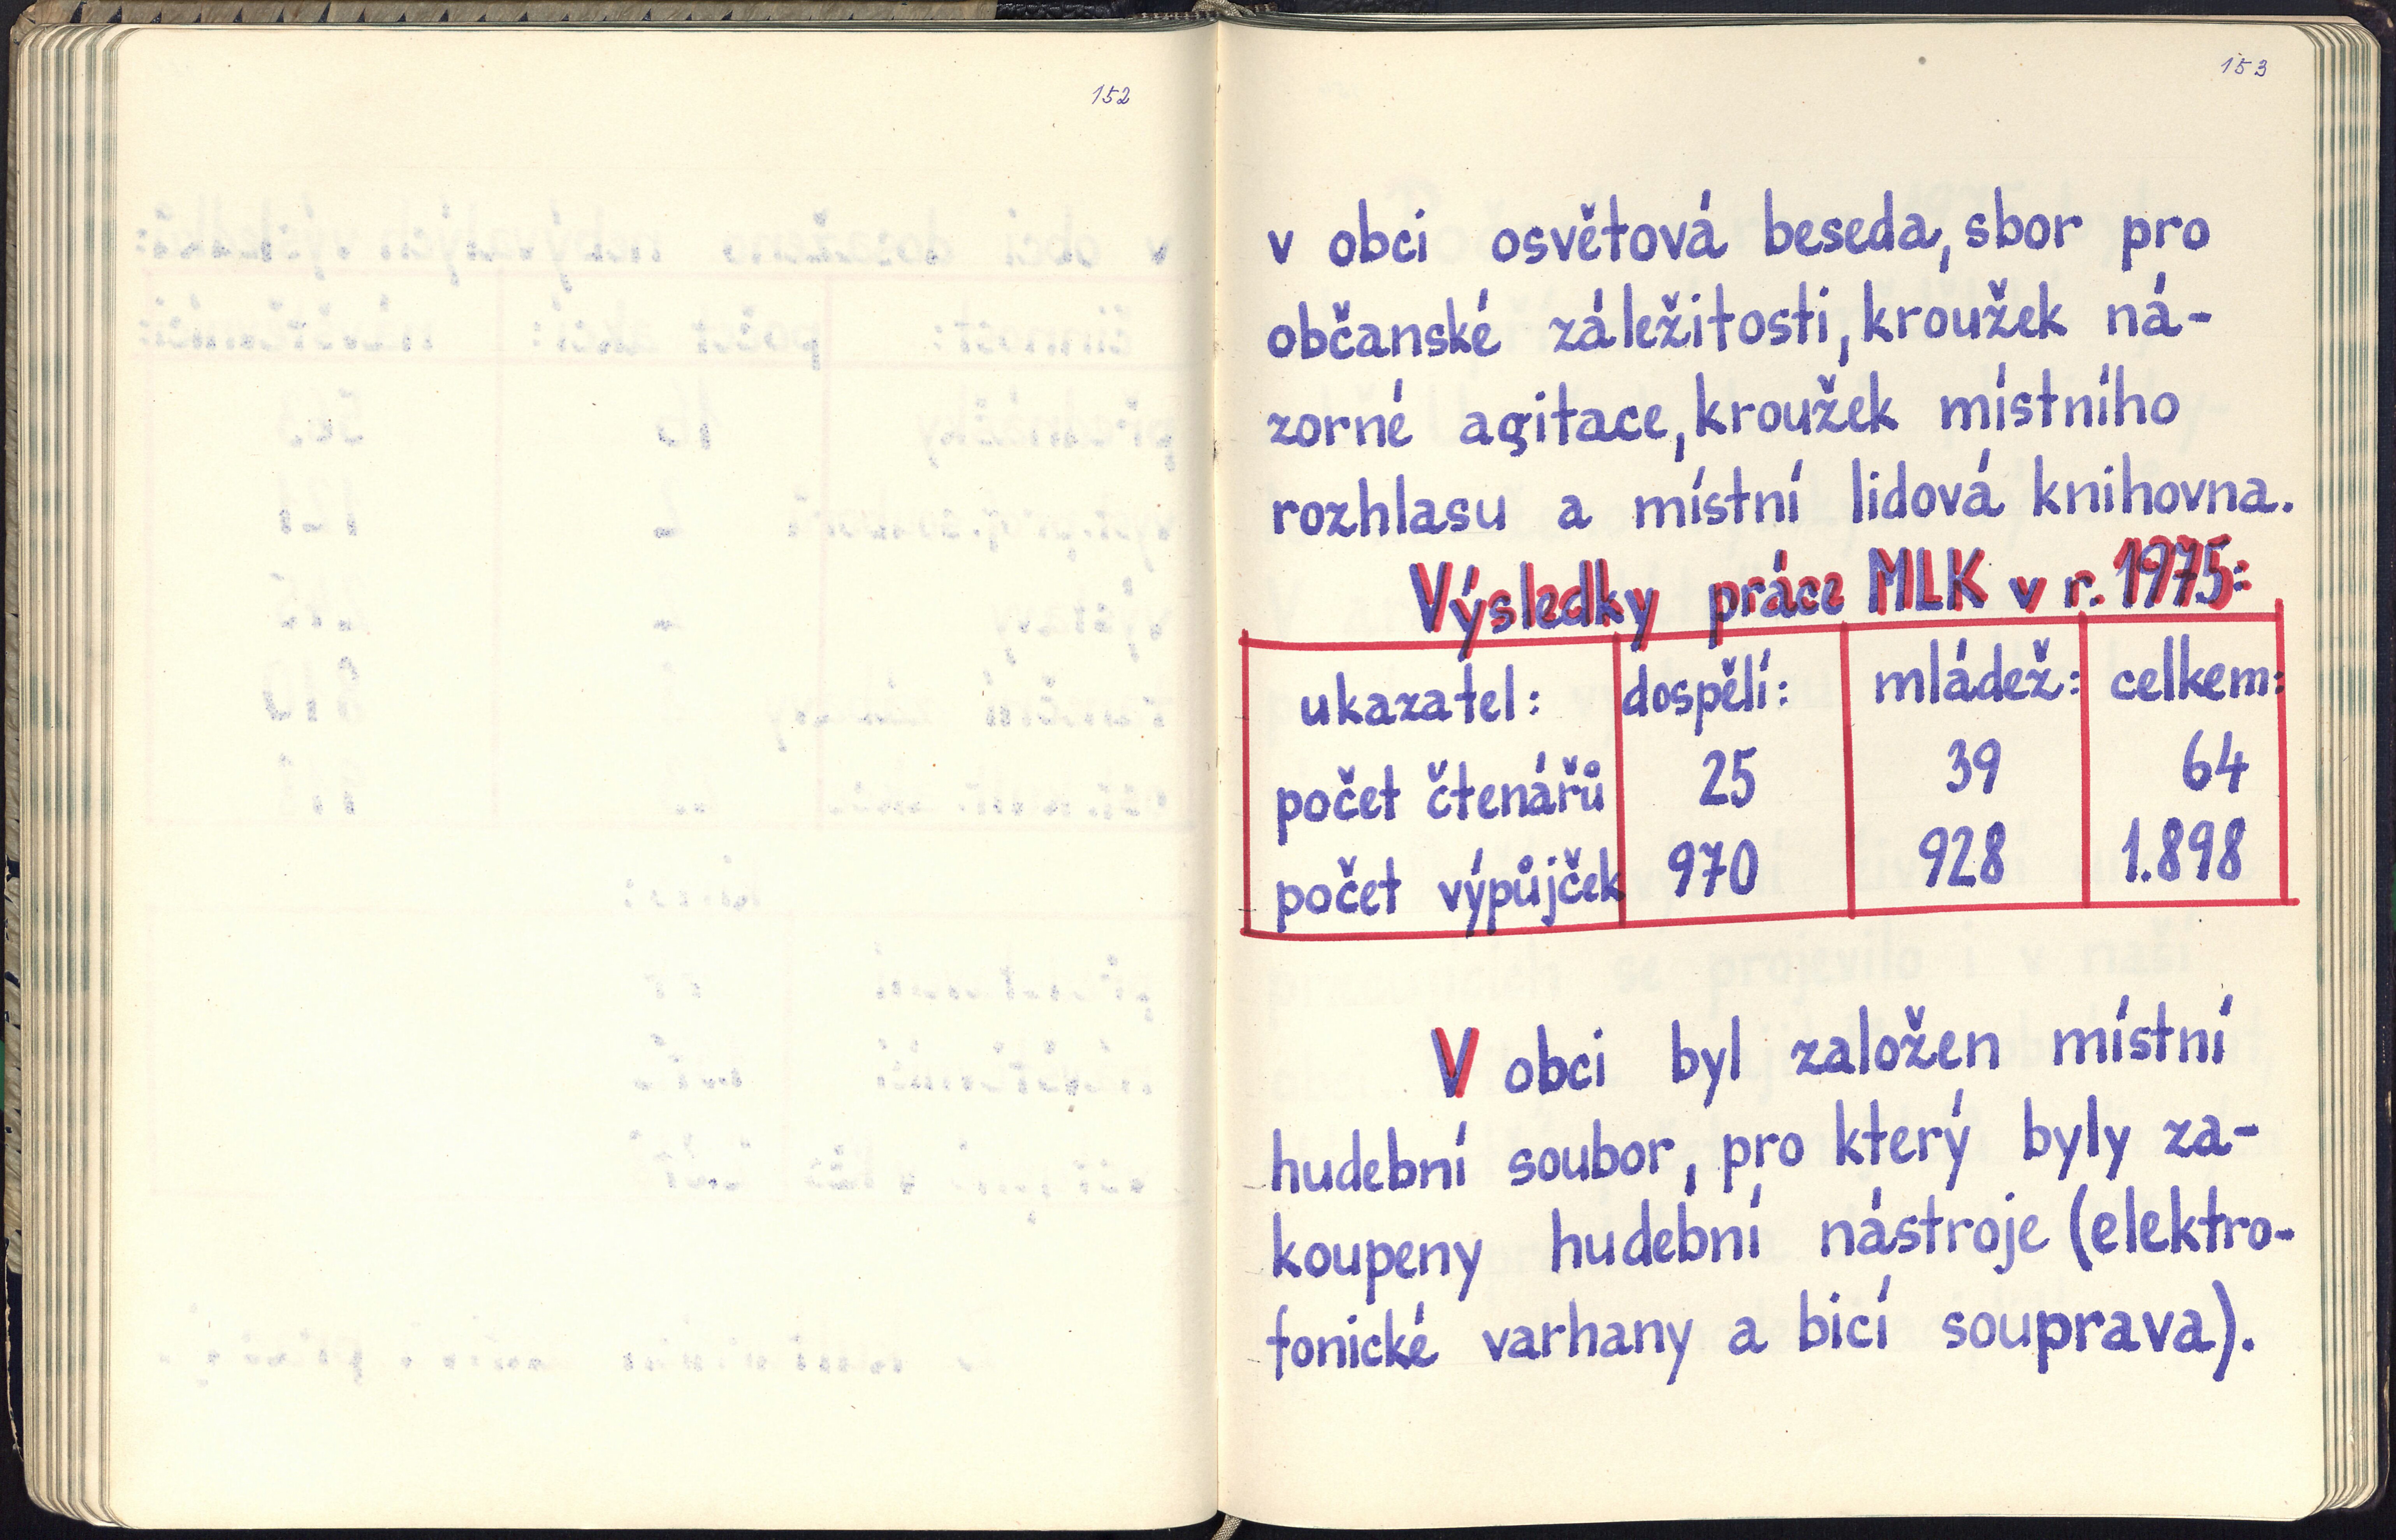 152
153
v obci osvětová beseda, sbor pro
občanské záležitosti, kroužek ná-
zorné agitace, kroužek místního
rozhlasu a místní lidová knihovna.
Výsledky práce MLK v r. 1975:
ukazatel: dospělí: mládež: celkem:
počet čtenářů 25 39 64
počet výpůjček 970 928 1.898
V obci byl založen místní
hudební soubor, pro který byly za-
koupeny hudební nástroje (elektro-
fonické varhany a bicí souprava).